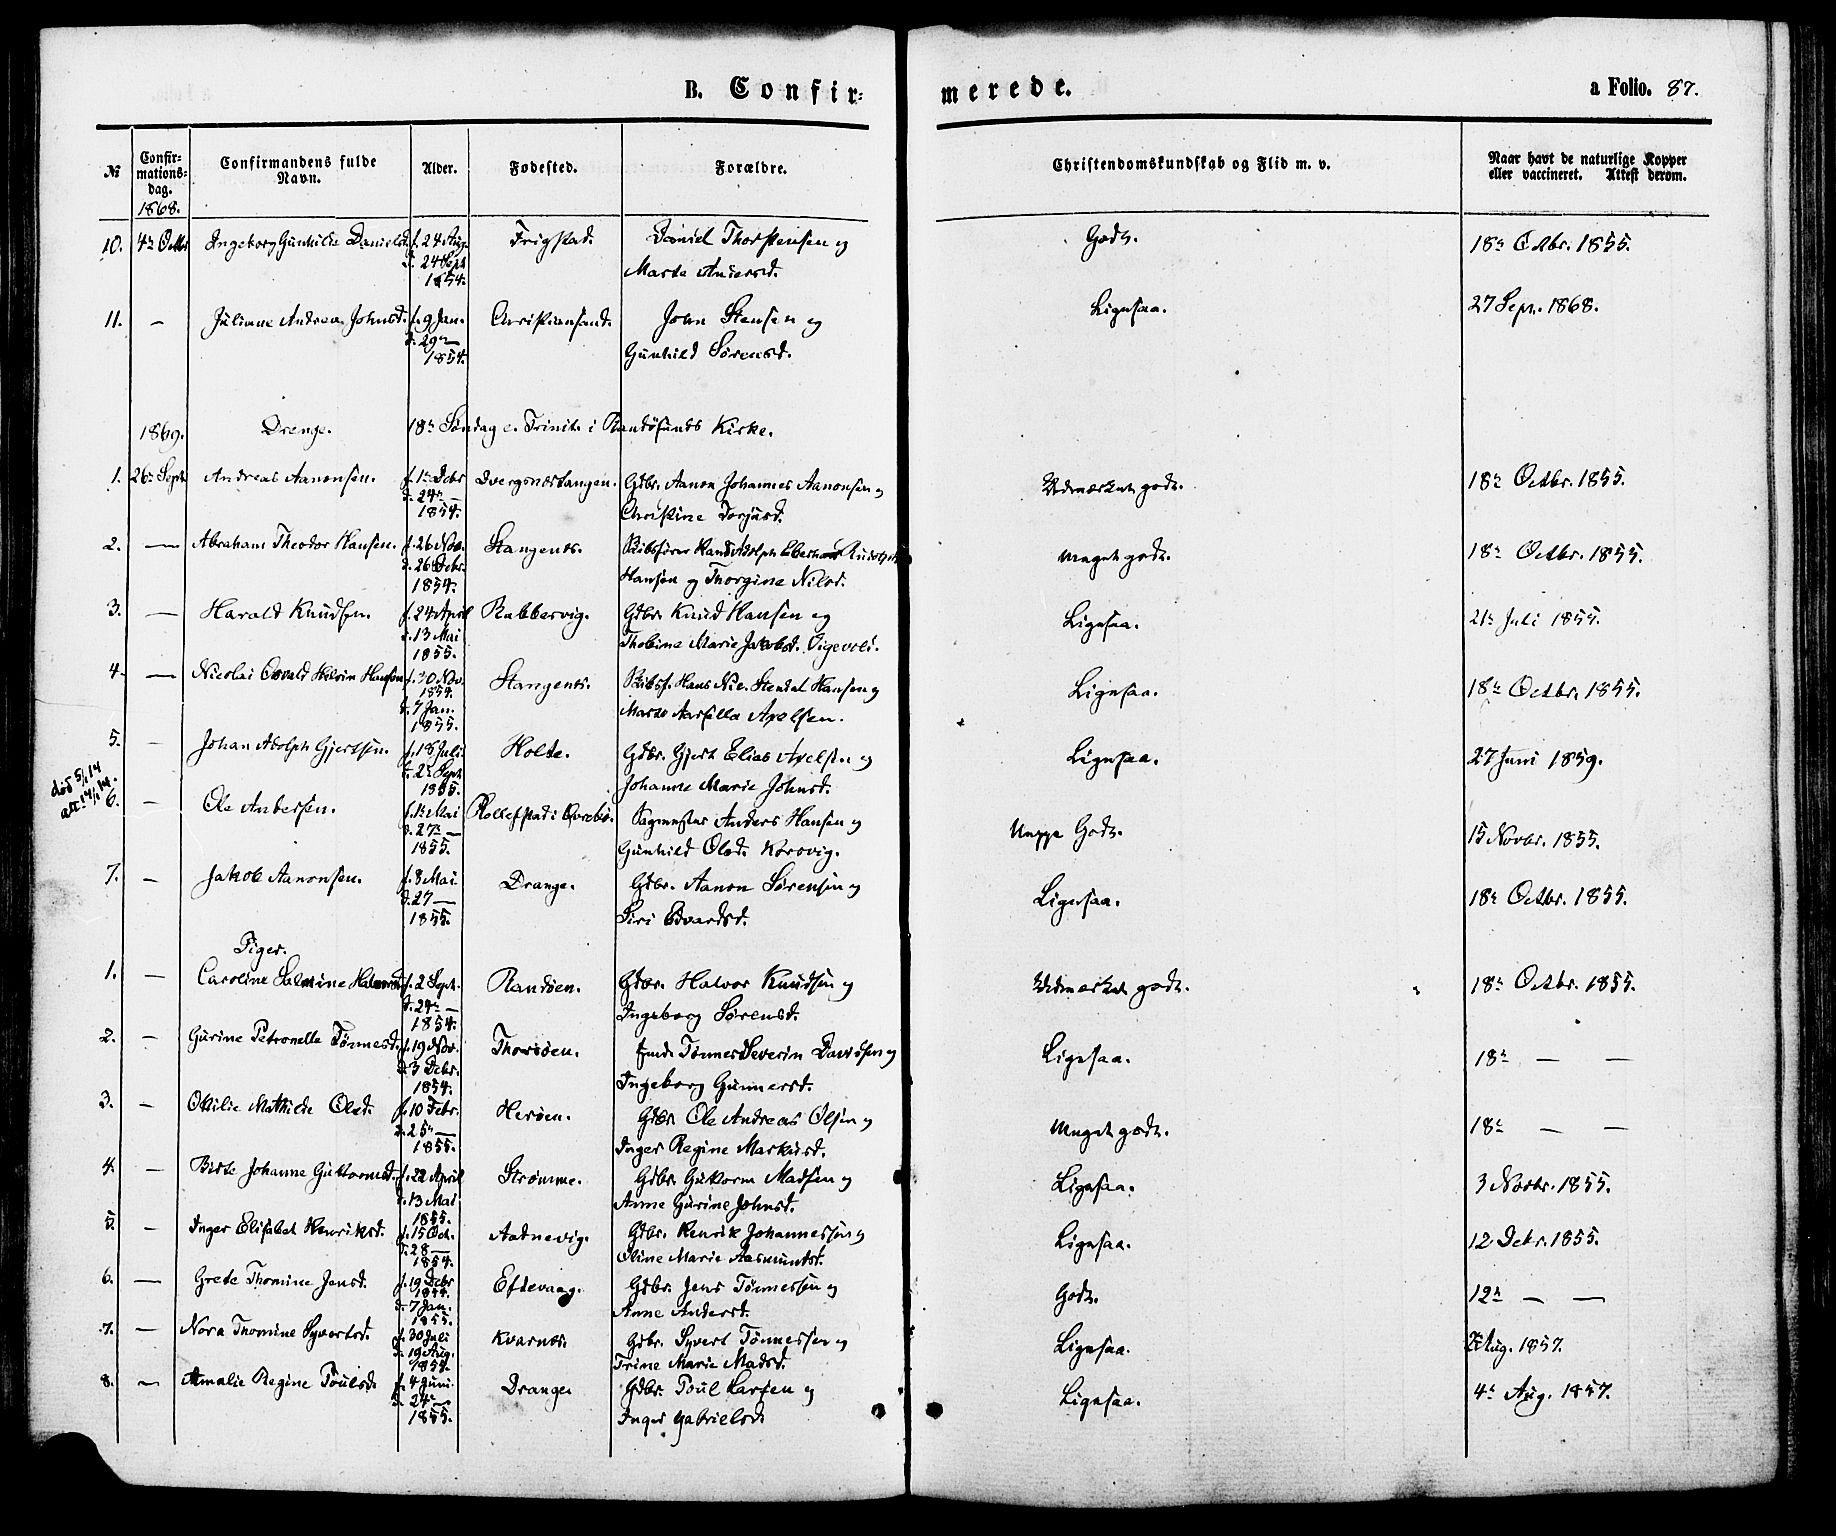 B. Confir-
merede.
a Folio. 87.
№
Confir-
mations-
dag.
1868.
Confirmandens fulde
Navn.
Alder.
Fødested.
Forældre.
Christendomskundskab og Flid m. v.
Naar havt de naturlige Kopper
eller vaccineret. Attest derom.
10. 4de Octbr Ingeborg Gunhilde Danielsd. f. 24 Aug. Frigstad. Daniel Thorstensen og Godt. 18de Octbr. 1855.
d. 24 Sept Marte Andersd.
1854.
11. — Juliane Andrea Johnsd. f. 9 Jan. Christiansand. John Stensen og Ligesaa. 27 Sep. 1868.
d. 29de — Gunhild Sørensd.
1854.
1869. Drenge. 18de Søndag e. Trinit. i Randøsunds Kirke.
1. 26de Sept Andreas Aanonsen. f. 1ste Debr Dvergsnestangen. Gdbr. Aanon Johannes Aanonsen og Udmærket godt. 18de Octbr. 1855.
d. 24de — Christine Torjusd.
1854.
2. — Abraham Theodor Hansen. f. 26 Nov. Stangenes. Adolph Eberhard Meget godt. 18de Octbr. 1855.
d. 26 Debr. Hansen og Thorgine Nilsd.
1854.
3. — Harald Knudsen. f. 24 April Rabbersvig. Gdbr. Knud Hansen og Ligesaa. 21de Juli 1855.
d. 13 Mai Thobine Marie Jakobsd.
1855.
4. — Nicolai Osvald Hansen f. 30 Nov. Stangenes. Skibsf. Hans Nic. Stendal Hansen og Ligesaa. 18de Octbr. 1855.
1854.
d. 7 Jan. Axelsen.
1855.
5. — Johan Adolph Gjertsen. f. 18 Juli Holte. Gdbr. Gjert Elias Axelsen og Ligesaa. 27 Juni 1859.
d. 2 Sept Johanne Marie Johnsd.
1855.
død 5/1 14
6. — Ole Andersen. f. 1ste Mai Rollefstad i Øvrebø. Sagmester Anders Hansen og Meget Godt. 15 Novbr. 1855.
d. 27de — Gunhild Olsd. Korsvig.
1855.
7. — Jakob Aanonsen. f. 8 Mai Drange. Gdbr. Aanon Sørensen og Ligesaa. 18de Octbr. 1855.
d. 27 — Siri Edvardsd.
1855.
Piger.
1. — Caroline Salmine Halvorsd. f. 2 Sept. Randøen. Gdbr. Halvor Knudsen og Udmærket godt. 18de Octbr. 1855.
d. 24de — Ingeborg Sørensd.
1854.
2. — Gurine Petronelle Tønnesd. f. 19 Nov. Thorsøen. Tønnes Severin Davidsen og Ligesaa. 18de — —
d. 3 Debr. Ingeborg Gunnersd.
1854.
3. — Otilie Mathilde Olsd. f. 10 Febr. Herøen. Gdbr. Ole Andreas Olsen og Meget godt. 18de — —
d. 25de — Inger Regine Markusd.
1855.
4. — Birte Johanne Guttormsd. f. 22 April Strømme. Gdbr. Guttorm Madsen og Ligesaa. 3 Novbr. 1855.
d. 13 Mai Anne Gurine Johnsd.
1855.
5. — Inger Elisabet Henriksd. f. 15 Oct. Aatnevig. Gdbr. Henrik Johannessen og Ligesaa. 12 Debr. 1855.
d. 28 — Oline Marie Aasmundsd.
1854.
6. — Grete Thomine Jensd. f. 19 Debr Eftevaag. Gdbr. Jens Tønnessen og Godt. 12de — —
1854.
d. 7 Jan. Anne Andersd.
1855.
7. — Nora Thomine Syvertsd. f. 30 Juli Kvarnes. Gdbr. Syvert Tønnessen og Ligesaa. Aug. 1857.
d. 19 Aug. Trine Marie Madsd.
1854.
8. — Amalie Regine Poulsd. f. 4 Juni Drange Gdbr. Poul Larsen og Ligesaa. 4de Aug. 1857.
d. 24de — Inger Gabrielsd.
1855.